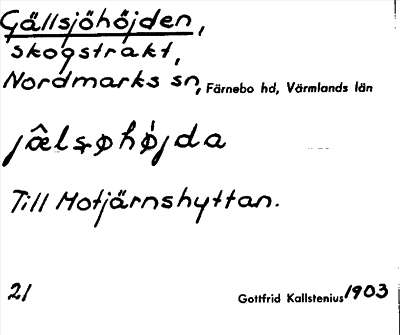 Gällsjöhöjden,
skogstrakt,
Nordmarks sn, Färnebo hd, Värmlands län
jæ̂lsøhø̀jda
Till Motjärnshyttan.
21 Gottfrid Kallstenius 1903